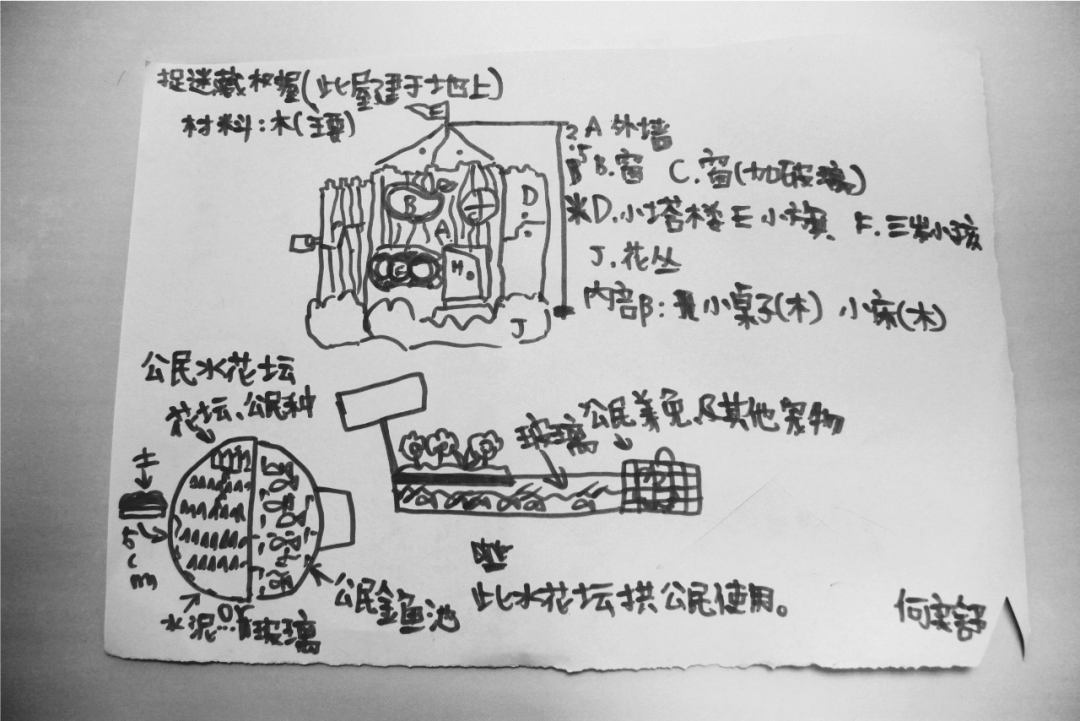 捉迷藏树屋(此屋建于地上)
材料:木(主要)
E
2.5米
A 外墙
B.窗 C.窗(加玻璃)
D.小塔楼 E 小旗 F.三岁小孩
J.花丛
内部:小桌子(木) 小床(木)
B
D
A
C
M
J
公民水花坛
花坛、公民种
土
5cm
水泥…or玻璃
公民金鱼池
玻璃
公民养兔及其他宠物
此水花坛拱公民使用。